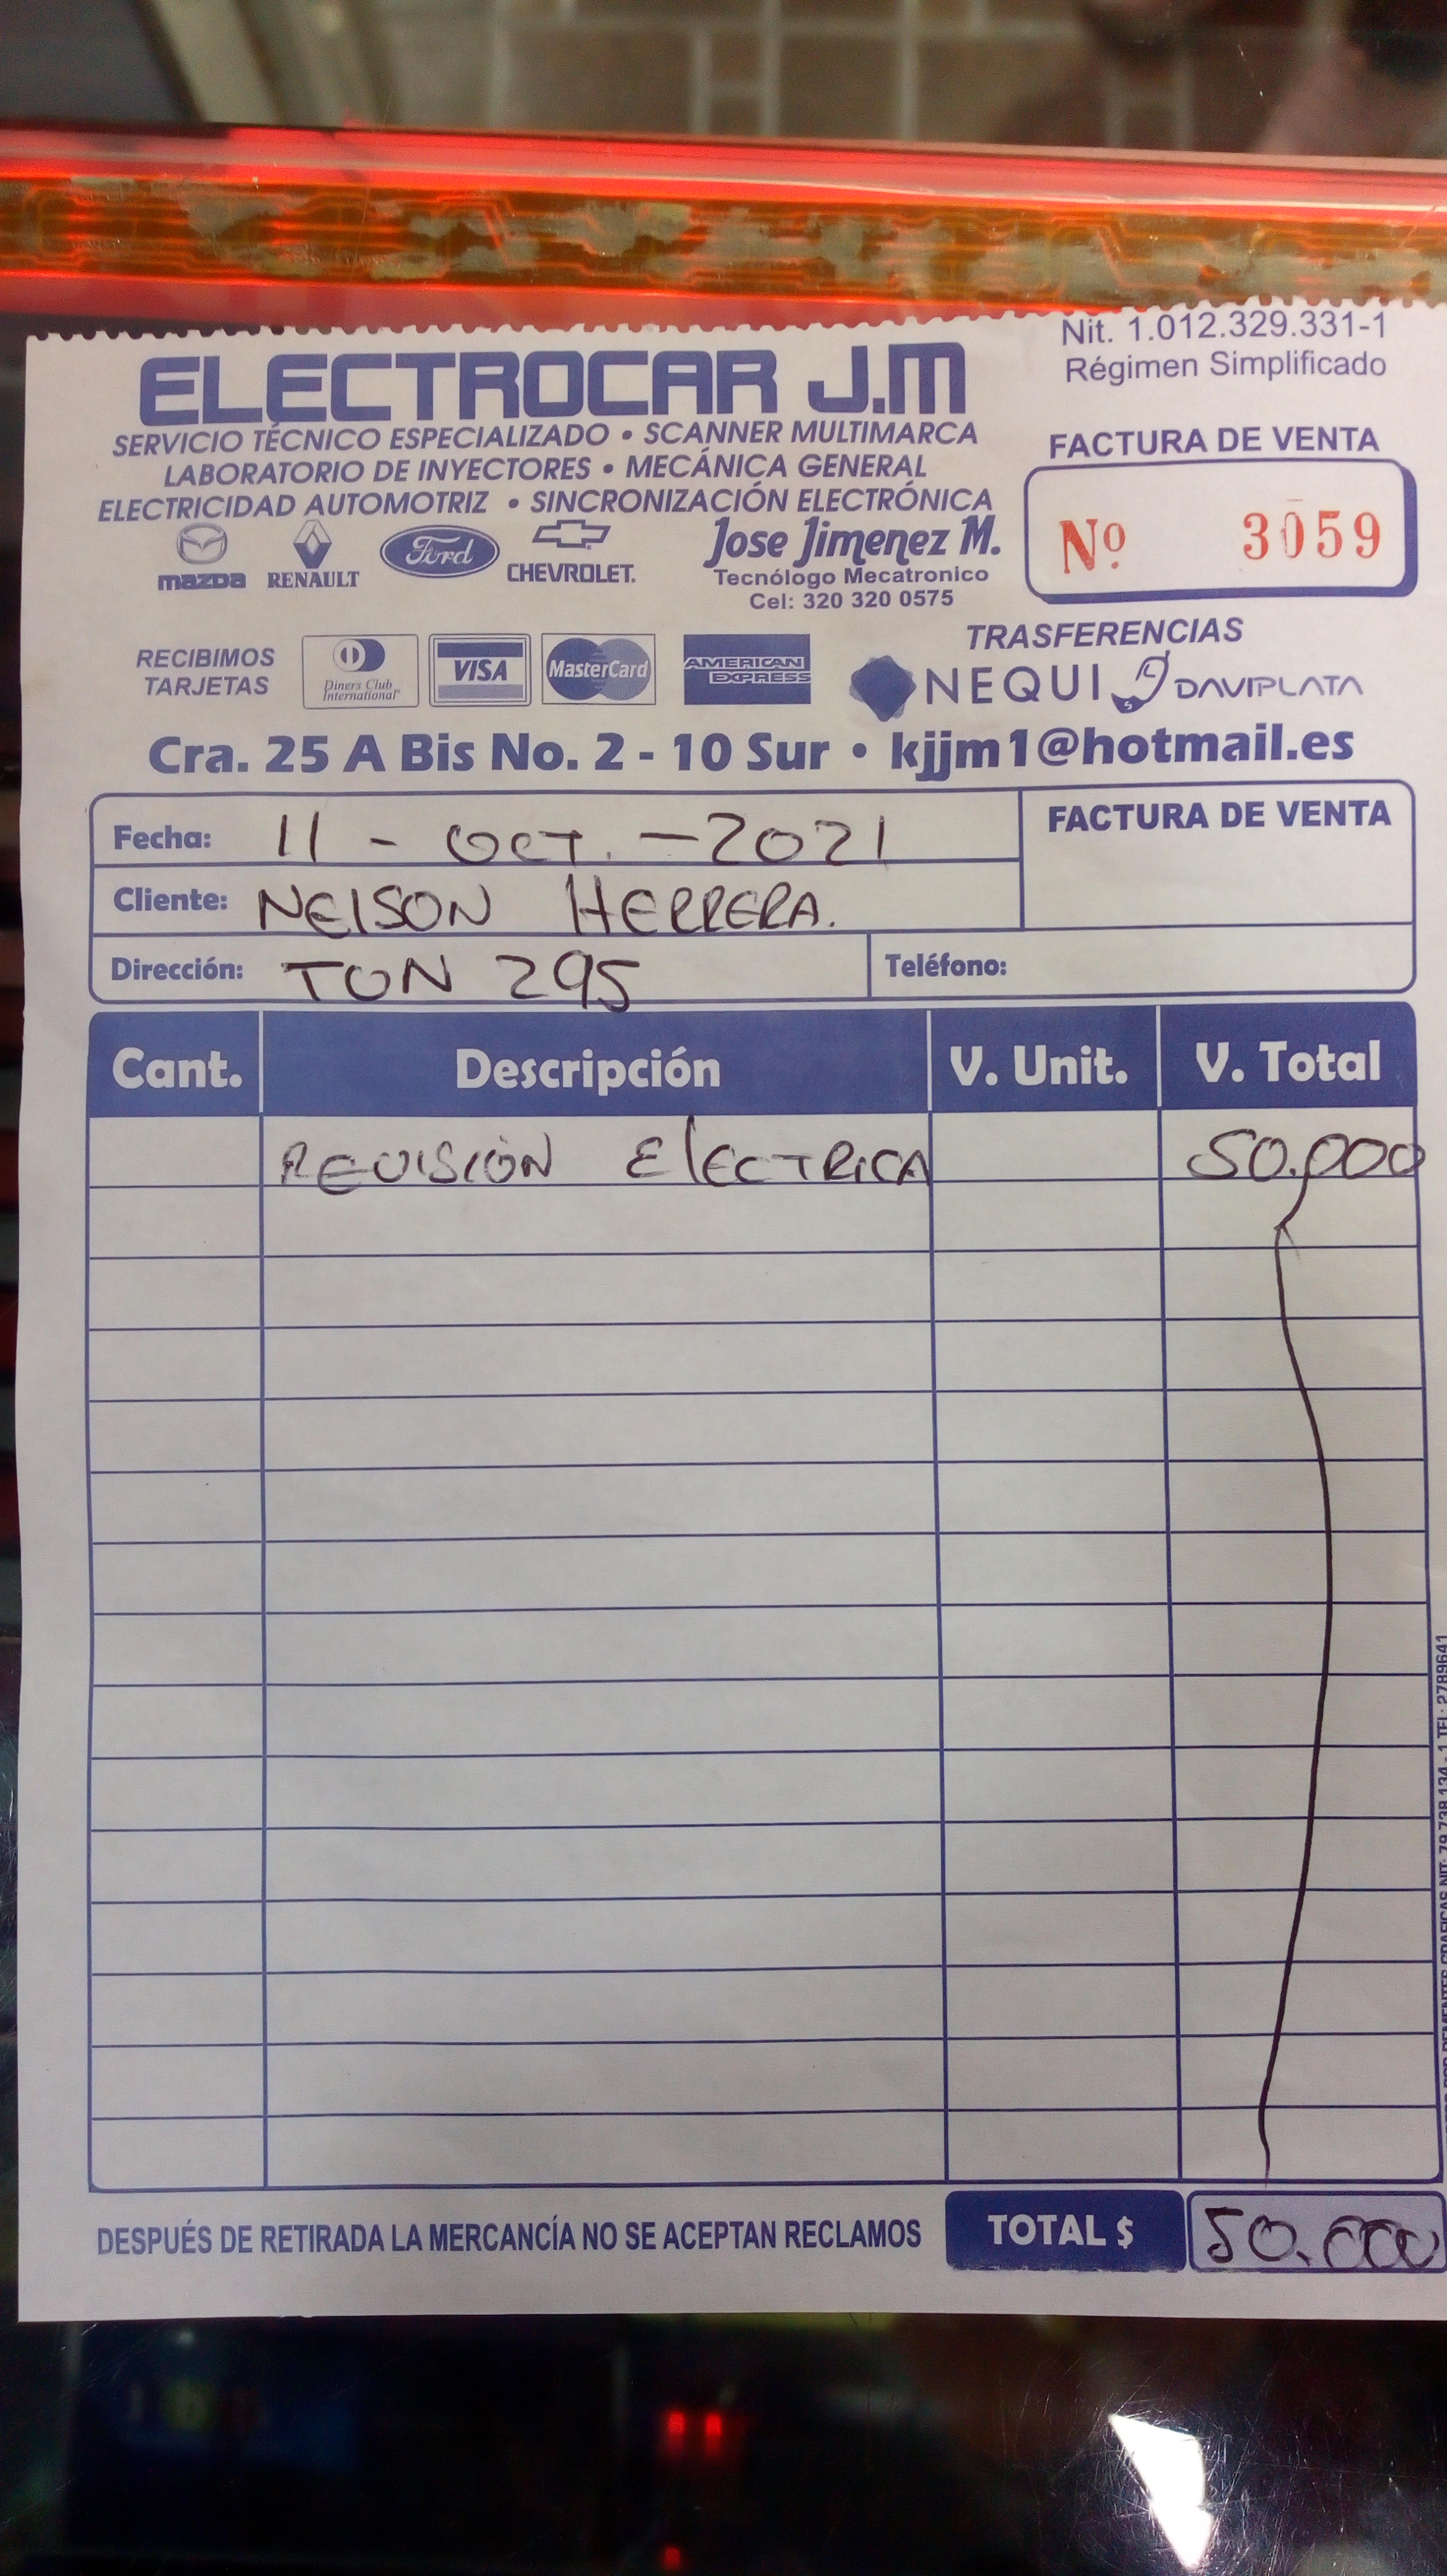 Nit. 1.012.329.331-1
Régimen Simplificado
ELECTROCAR J.M
SERVICIO TÉCNICO ESPECIALIZADO • SCANNER MULTIMARCA
LABORATORIO DE INYECTORES • MECÁNICA GENERAL
ELECTRICIDAD AUTOMOTRIZ • SINCRONIZACIÓN ELECTRÓNICA
FACTURA DE VENTA
Nº. 3059
mazda RENAULT Ford CHEVROLET.
Jose Jimenez M.
Tecnólogo Mecatronico
Cel: 320 320 0575
RECIBIMOS
TARJETAS
Diners Club
International
VISA
MasterCard
AMERICAN
EXPRESS
TRASFERENCIAS
NEQUI DAVIPLATA
Cra. 25 A Bis No. 2 - 10 Sur • kjjm1@hotmail.es
Fecha: 11 - OCT. - 2021
FACTURA DE VENTA
Cliente: NELSON HERRERA.
Dirección: TON 295 Teléfono:
Cant. Descripción V. Unit. V. Total
REVISIÓN ELECTRICA 50.000
DESPUÉS DE RETIRADA LA MERCANCÍA NO SE ACEPTAN RECLAMOS TOTAL $ 50.000
GRAFICAS NIT: 79.738.134 - 1 TEL: 2789641